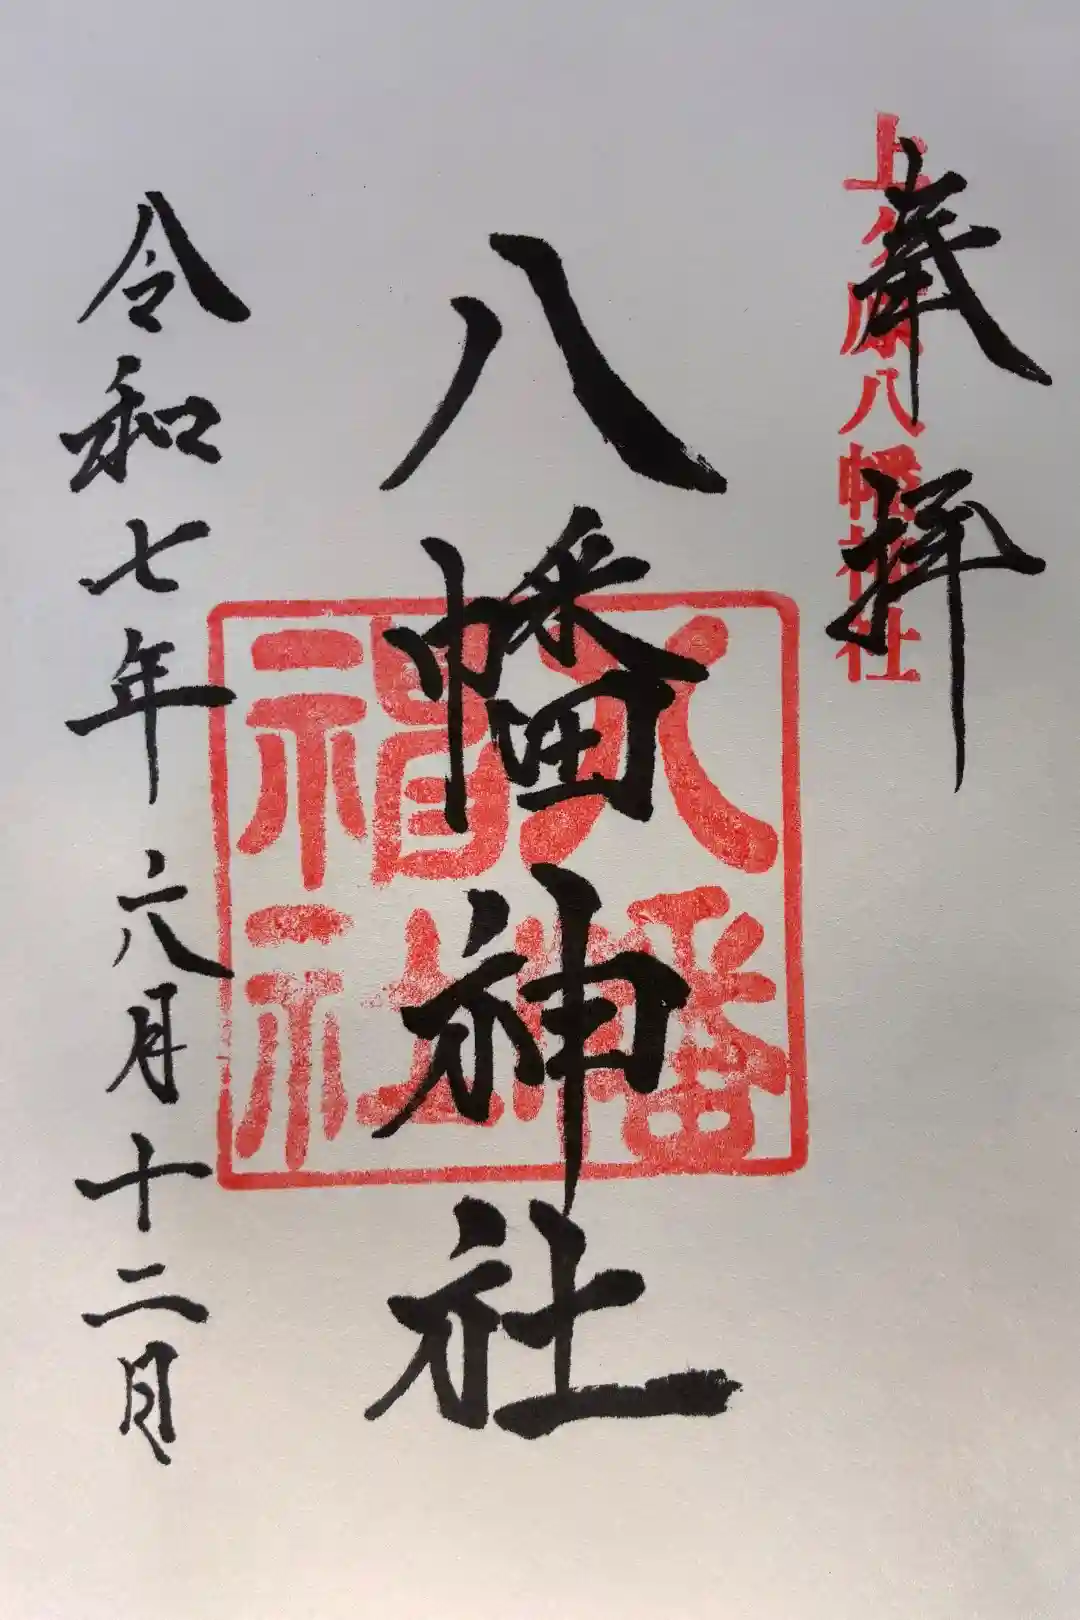 奉拝
八幡神社
八幡神社
八幡神社
令和七年六月十二日